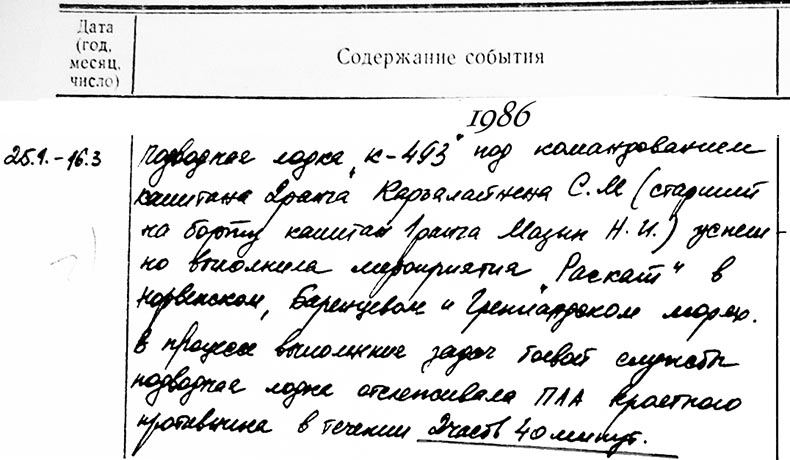 Дата
(год,
месяц,
число)
Содержание события
1986
25.1.-16.3
Подводная лодка "К-493" под командованием
капитана 2 ранга Карьалайнена С.М (старший
на борту капитан 1 ранга Мазин Н.И.) успеш-
но выполнила мероприятия "Раскат" в
Норвежском, Баренцевом и Гренландском морях.
В процессе выполнение задач боевой службы
подводная лодка отслеживала ПЛА
противника в течении 2часов 40минут.